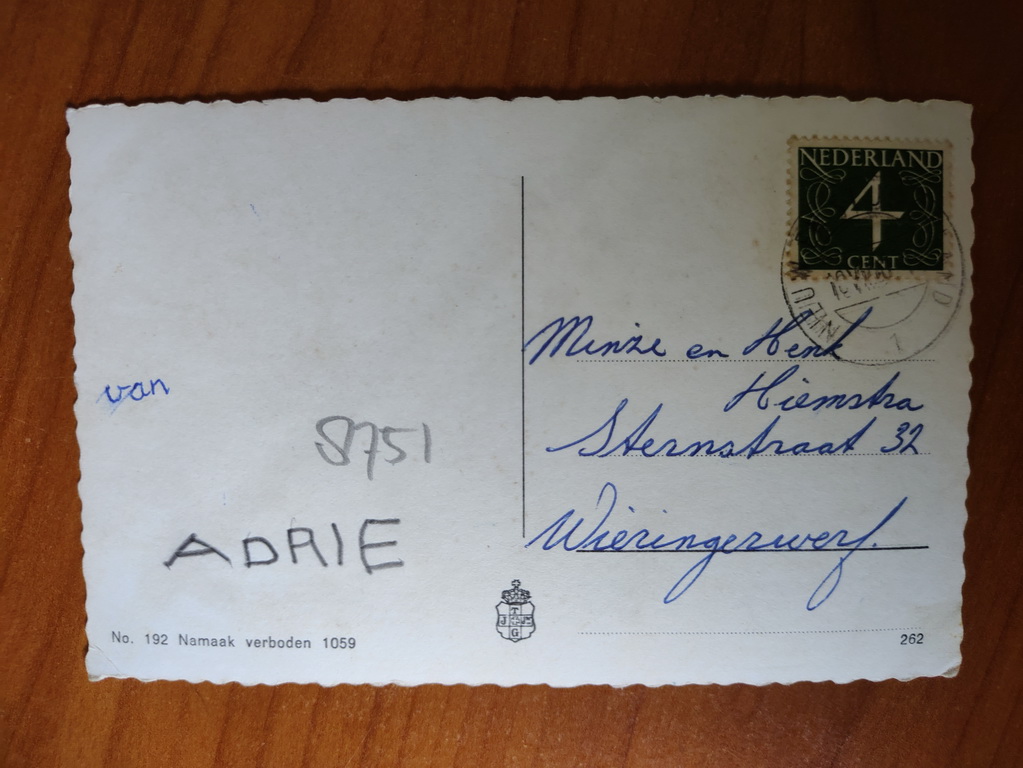 NEDERLAND
4
CENT
Minze en Henk
Hiemstra
Sternstraat 32
Wieringerwerf.
van
8751
ADRIE
No. 192 Namaak verboden 1059
T
J
G
262